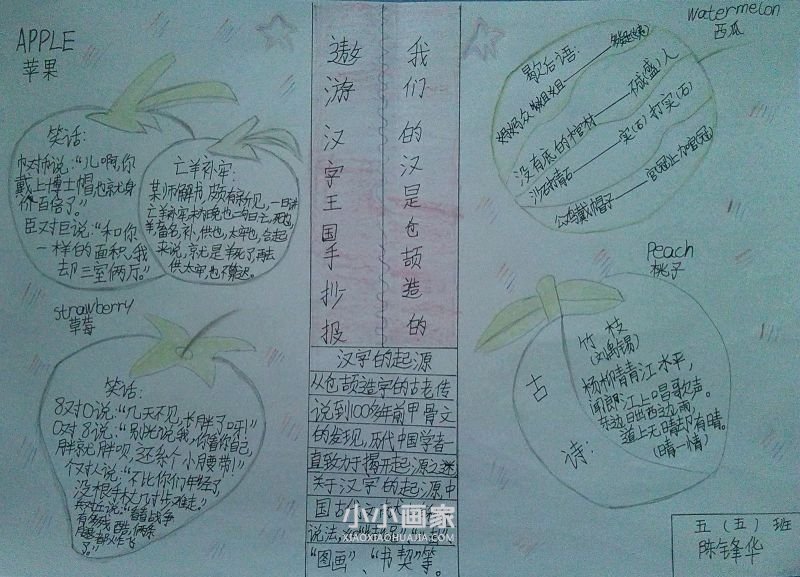 APPLE
苹果
笑话:
巾对币说:“儿啊,你
戴上博士帽也就身
价百倍了。”
臣对巨说:“和你
一样的面积,我
却三室俩厅。”
亡羊补牢:
某师解书,颇有新见,一日讲
亡羊补牢
来说,就是羊死了再去
供太牢,也不算迟。
strawberry
草莓
笑话:
8对0说:“几天不见,长胖了呀!”
0对8说:“别光说我,你看你自己
胖就胖呗,还系个小腰带!”
个对人说:“不比你们年轻了
没根手杖几寸步难走。”
遨游汉字王国手抄报
我们的汉是仓颉造的
汉字的起源
从仓颉造字的古老传
说到100多年前甲骨文
的发现,历代中国学者一
直致力于揭开起源之迷
关于汉字的起源中
国古代
说法,
“图画”、“书契”等。
小小画家
XIAOXIAOHUAJIA.COM
watermelon
西瓜
歇后语:
碱(盛)人
没有底的棺材
实(石)打实(石)
公鸡戴帽子
官(冠)上加官(冠)
Peach
桃子
古诗:
竹枝
(刘禹锡)
杨柳青青江水平,
闻郎江上唱歌声。
东边日出西边雨,
道上无晴却有晴。
(晴一情)
五(五)班
陈锋华